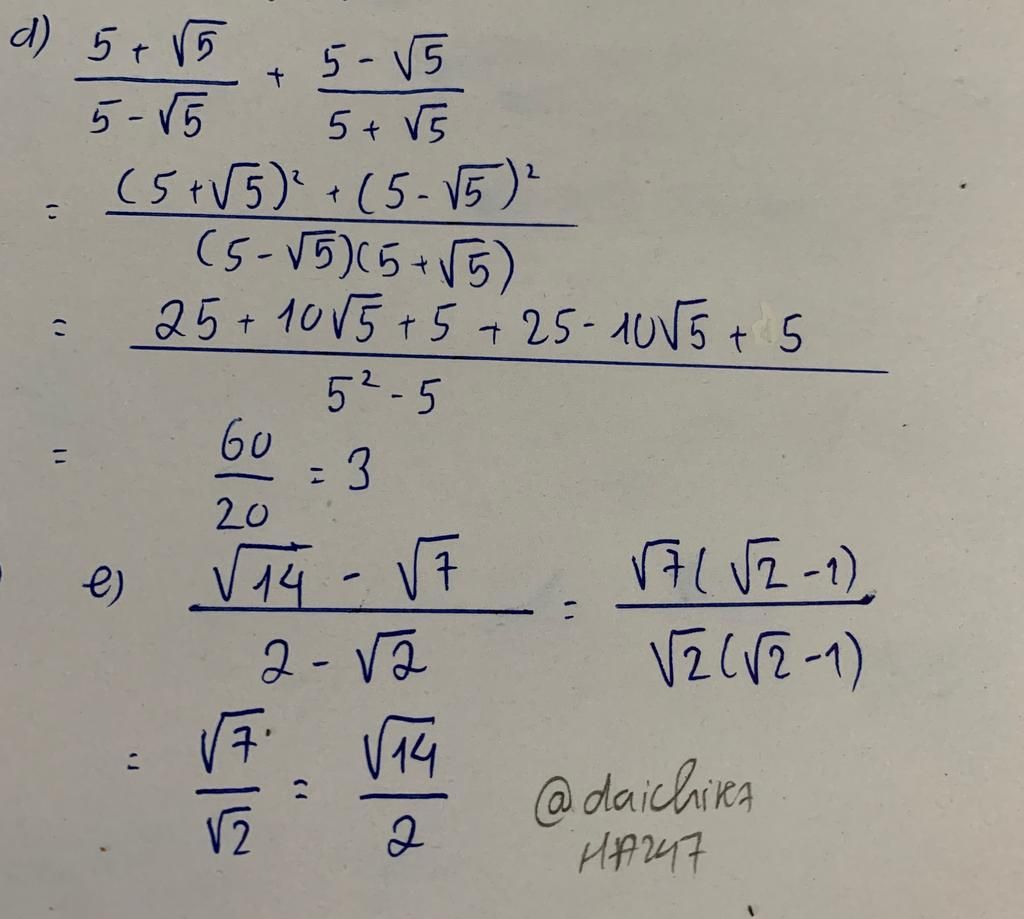 d) \frac{5 + \sqrt{5}}{5 - \sqrt{5}} + \frac{5 - \sqrt{5}}{5 + \sqrt{5}}
= \frac{(5 + \sqrt{5})^2 + (5 - \sqrt{5})^2}{(5 - \sqrt{5})(5 + \sqrt{5})}
= \frac{25 + 10\sqrt{5} + 5 + 25 - 10\sqrt{5} + 5}{5^2 - 5}
= \frac{60}{20} = 3
e) \frac{\sqrt{14} - \sqrt{7}}{2 - \sqrt{2}} = \frac{\sqrt{7}(\sqrt{2} - 1)}{\sqrt{2}(\sqrt{2} - 1)}
= \frac{\sqrt{7}}{\sqrt{2}} = \frac{\sqrt{14}}{2}
@daichika
HA247